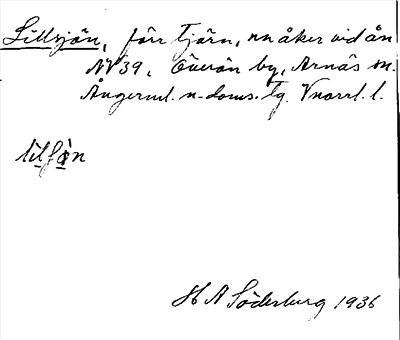 Lillsjön, förr tjärn, nu åker vid ån
NV 39, Överån by, Arnäs sn.
Ångerml. n. doms. tg. Vnorrl. l.
lìlfø̀n
H A Söderburg 1936